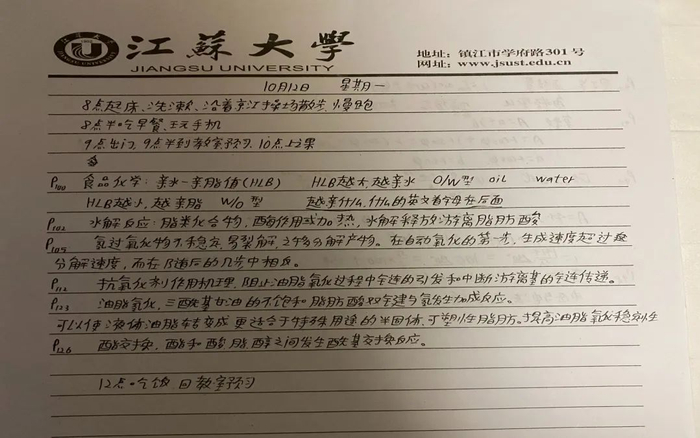 江蘇大學
JIANGSU UNIVERSITY
地址：镇江市学府路301号
网址：www.jsust.edu.cn
10月12日 星期一
8点起床、洗漱、沿着京江操场散步、慢跑
8点半吃早餐、玩手机
9点出门，9点半到教室预习，10点上课
P100 食品化学：亲水—亲脂值(HLB) HLB越大越亲水 O/W型 oil water
HLB越小，越亲脂 W/O型 越亲什么，什么的英文首字母在后面
P102 水解反应：脂类化合物，酶作用或加热，水解释放游离脂肪酸
P109 氢过氧化物不稳定，易裂解，之多分解产物。在自动氧化的第一步，生成速度超过
分解速度，而在随后的几步中相反。
P112 抗氧化剂作用机理，阻止油脂氧化过程中全连的引发和中断游离基的全连传递。
P123 油脂氢化，三酰基甘油的不饱和脂肪酸双全建与氢发生加成反应。
可以使液体油脂转变成更适合于特殊用途的半固体，可塑性脂肪。提高油脂氧化稳定性
P126 酯交换，酯和酸、脂、醇之间发生酰基交换反应。
12点吃饭，回教室预习